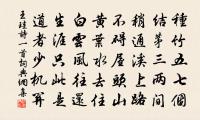 種竹五七個
結茅三兩間
稍通溪上路
不碍屋頭山
黃葉水去住
白雲風往還
生涯只此是
道者少机関
詩一首